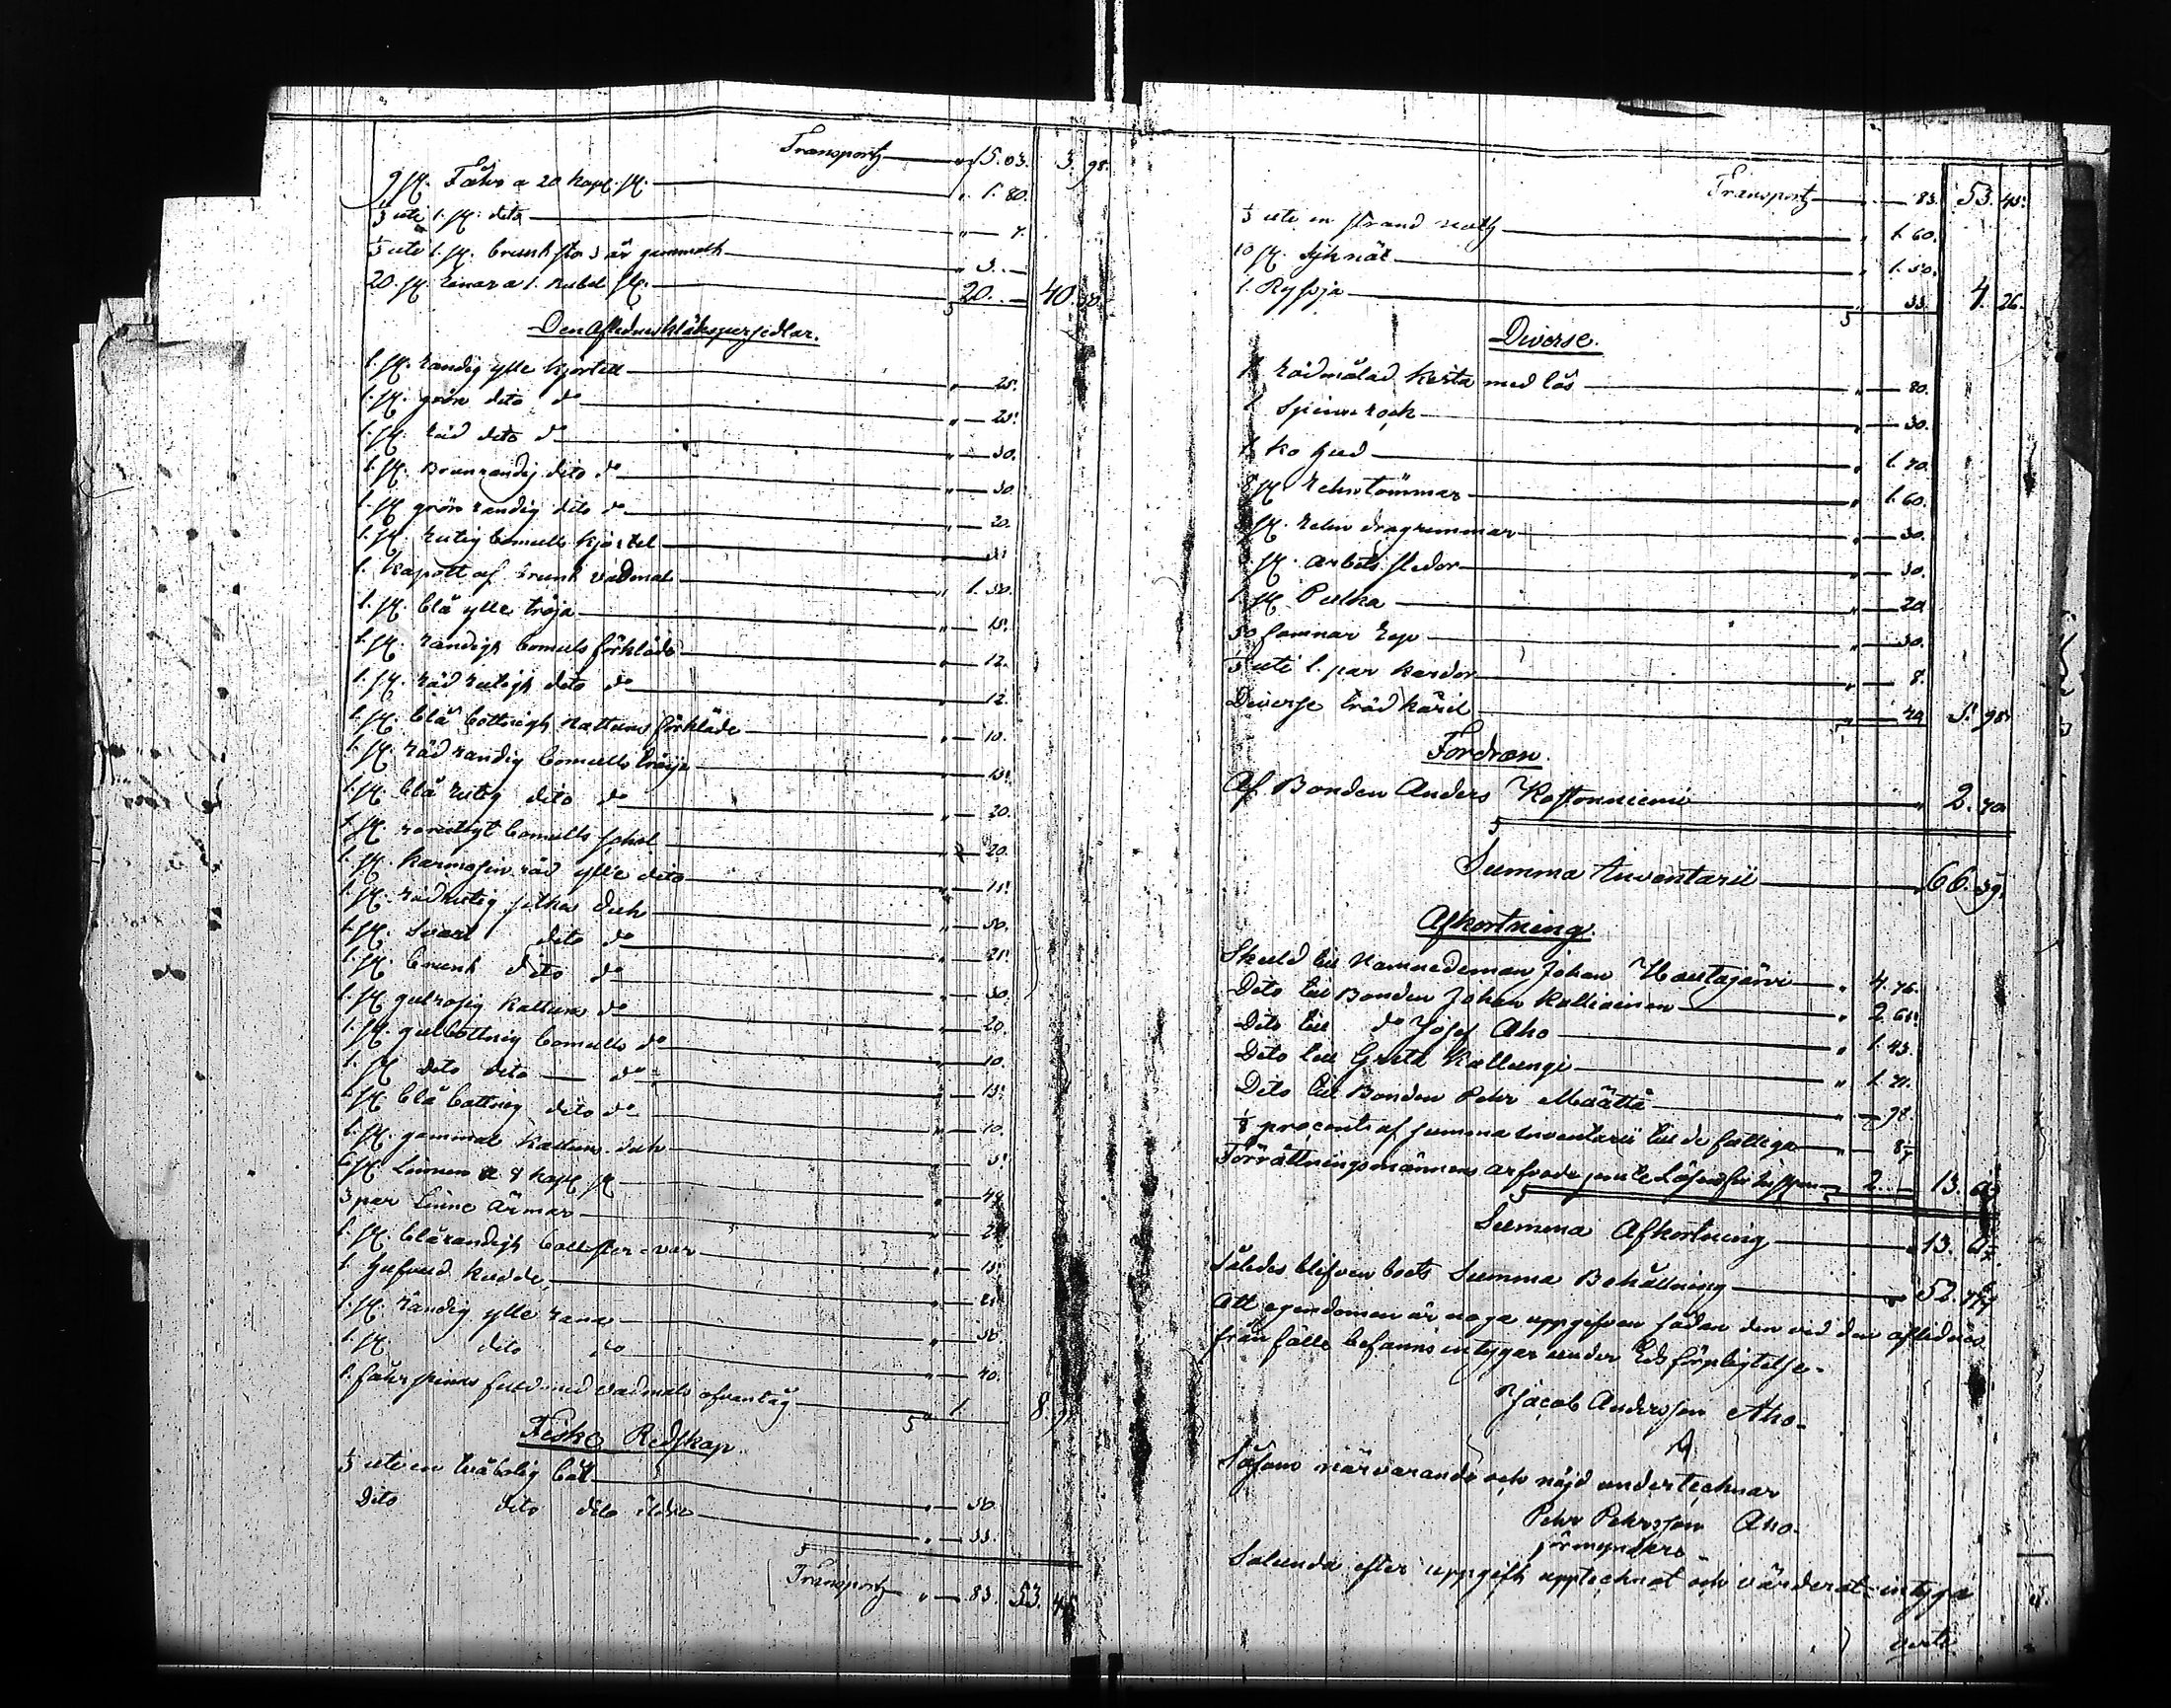 Transport „ 15.03. 3. 98.
9 st. Fåhr a 20 kop. st. „ 1. 80.
⅓ uti 1. st. dito „ — 7.
⅓ uti 1. st. brunt sto 3 år gammalt „ 3. —
20. st. renar a 1. Rubel st. 20. — 40.
Den Aflednes klädespersedlar.
1. st. randig ylle kjortell „ — 25.
1. st. grön dito do „ — 25.
1. st. röd dito do „ — 30.
1. st. Brunrandig dito do „ — 30
1. st. grön randig dito do „ — 20.
1. st. rutig bomulls kjortel
1. kapott af brunt vadmal „ 1. 50.
1. st. blå ylle tröja „ — 15.
1. st. randigt bomuls förkläde „ — 12.
1. st. röd rutigt dito do „ — 12.
1. st. blå bottnigt kattuns förkläde „ — 10.
1. st. röd randig bomulls tröija „ — 15.
1. st. blå rutig dito do „ — 20.
1. st. bomulls schal „ — 20.
1. st. karmosin röd ylle dito „ — 15.
1. st. rödrutig silkes duk „ — 50.
1. st. Svart dito do „ — 25.
1. st. brunt dito do „ — 30.
1. st. gulrosig kattuns do „ — 20.
1. st. gulbottnig bomulls do „ — 10.
1. st. dito dito — do „ — 15.
1. st. blå bottnig dito do „ — 10.
1. st. gammal kattuns duk „ — 5.
6 st. Linnen a 8 kop. st. „ — 48.
3 par Linne ärmar „ —
1. st. blårandigt bollster-var „ — 15.
1 hufvud kudde „ — 25
1. st. randig ylle rana „ — 50
1. st. dito do „ — 40.
1. fåhrskinns fäll med vadmals ofvantåg „ 1. — 8.
Fiske Redskap
⅓ uti en tvåbolig båt „ — 50
Dito dito dito äldre „ — 33.
Transport „ — 83. 53. 45

Transport — 83. 53. 45.
⅓ uti en strand noth „ 1. 60.
10 st. Sjknät „ 1. 50.
1. Ryssja „ 33. 4. 26.
Diverse.
1 rödmålad kista med lås „ — 80.
1 Spinnrock „ — 30.
1 ko hud „ 1. 70.
8 st. rehntömmar „ 1. 60.
st. rehn dragremmar „ — 30.
st. arbets slädor „ — 30.
1 st. Pulka „ — 20
50 famnar rep „ — 30.
⅓ uti 1. par kardor „ — 8.
Diverse träd käril „ — 5. 98
Fordran.
Af Bonden Anders Kostonniemi „ 2. 70.
Summa Inventarii „ 66. 39.
Afkortning.
Skuld till Nämndeman Johan Hautajärvi „ 4. 76.
Dito till Bonden Johan Kallioinen „ 2. 65.
Dito till do Josef Aho „ 1. 43.
Dito till Greta Kallungi „ 1. 71.
Dito till Bonden Pehr Määttä „ — 98.
⅛ procent af summa Inventarii till de fattiga „ —
Förrättningsmännens arfvode jemte „ 2. — 13.
Summa Afkortning „ 13.
Således blifven boets Summa Behållning „ 52.
Att egendomen är noga uppgifven sådan den vid den aflidnes
frånfälle befanns intygar under Edsförpligtelse.
Jacob Andersson Aho.
Såsom närvarande och nöjd undertecknar
Pehr Pehrsson Aho.
förmyndare
Salunda efter uppgift upptecknat och värderat intyga